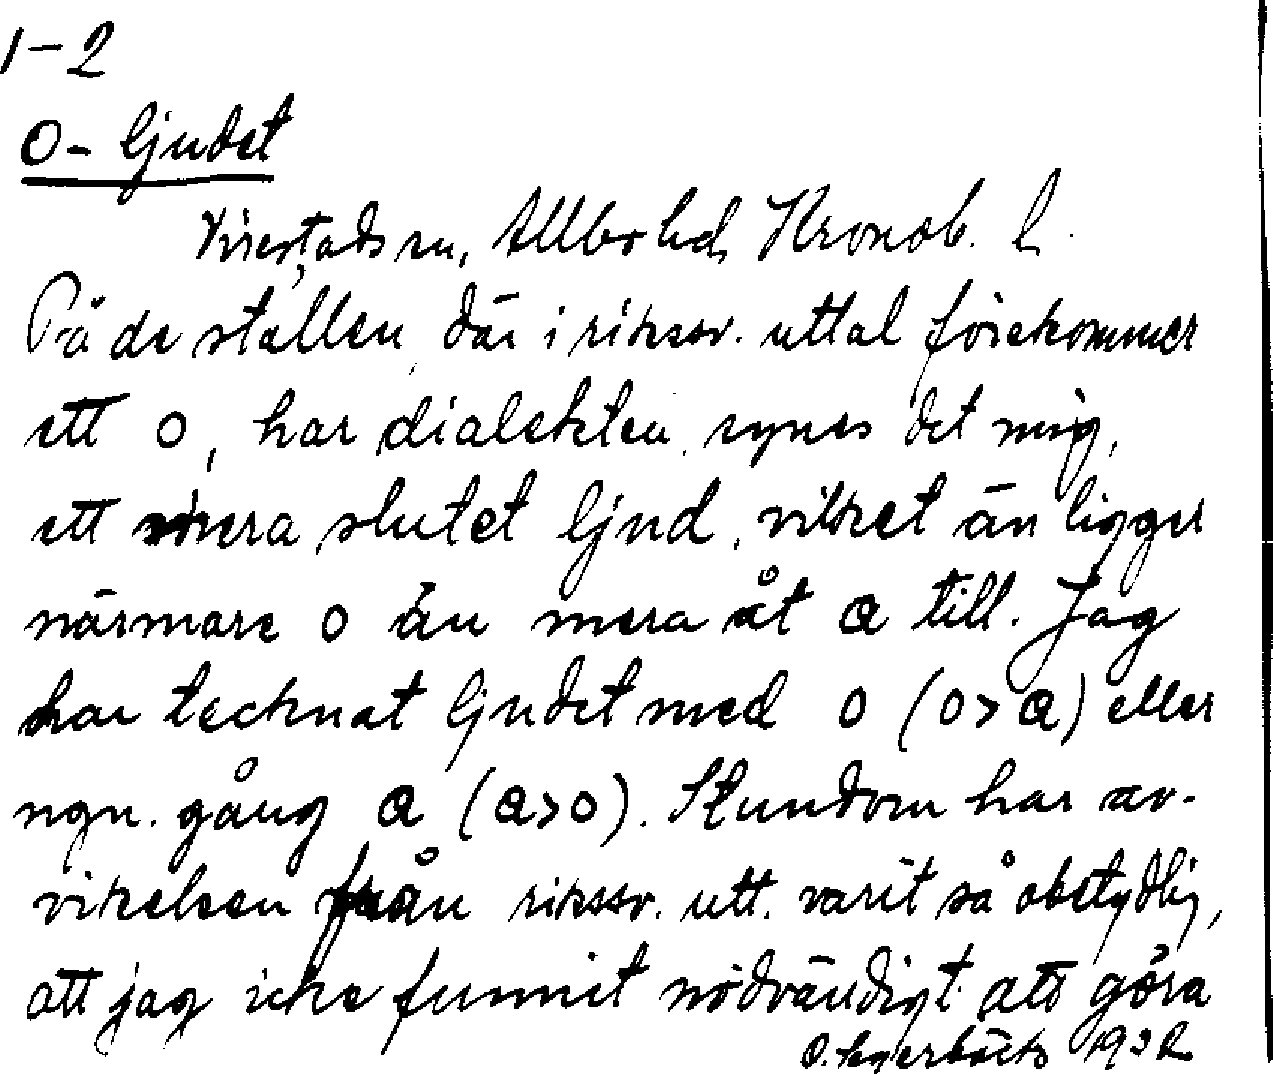 1-2
o-ljudet
Virestads sn, Allbo hd, Kronob. l.
På de ställen, där i rikssv. uttal förekommer
ett o, har dialekten, synes det mig,
ett mera slutet ljud, vilket än ligger
närmare o än mera åt a till. Jag
har tecknat ljudet med o (o>a) eller
ngn. gång a (a>o). Stundom har av-
vikelsen från rikssv. utt. varit så obetydlig,
att jag icke funnit nödvändigt att göra
1932